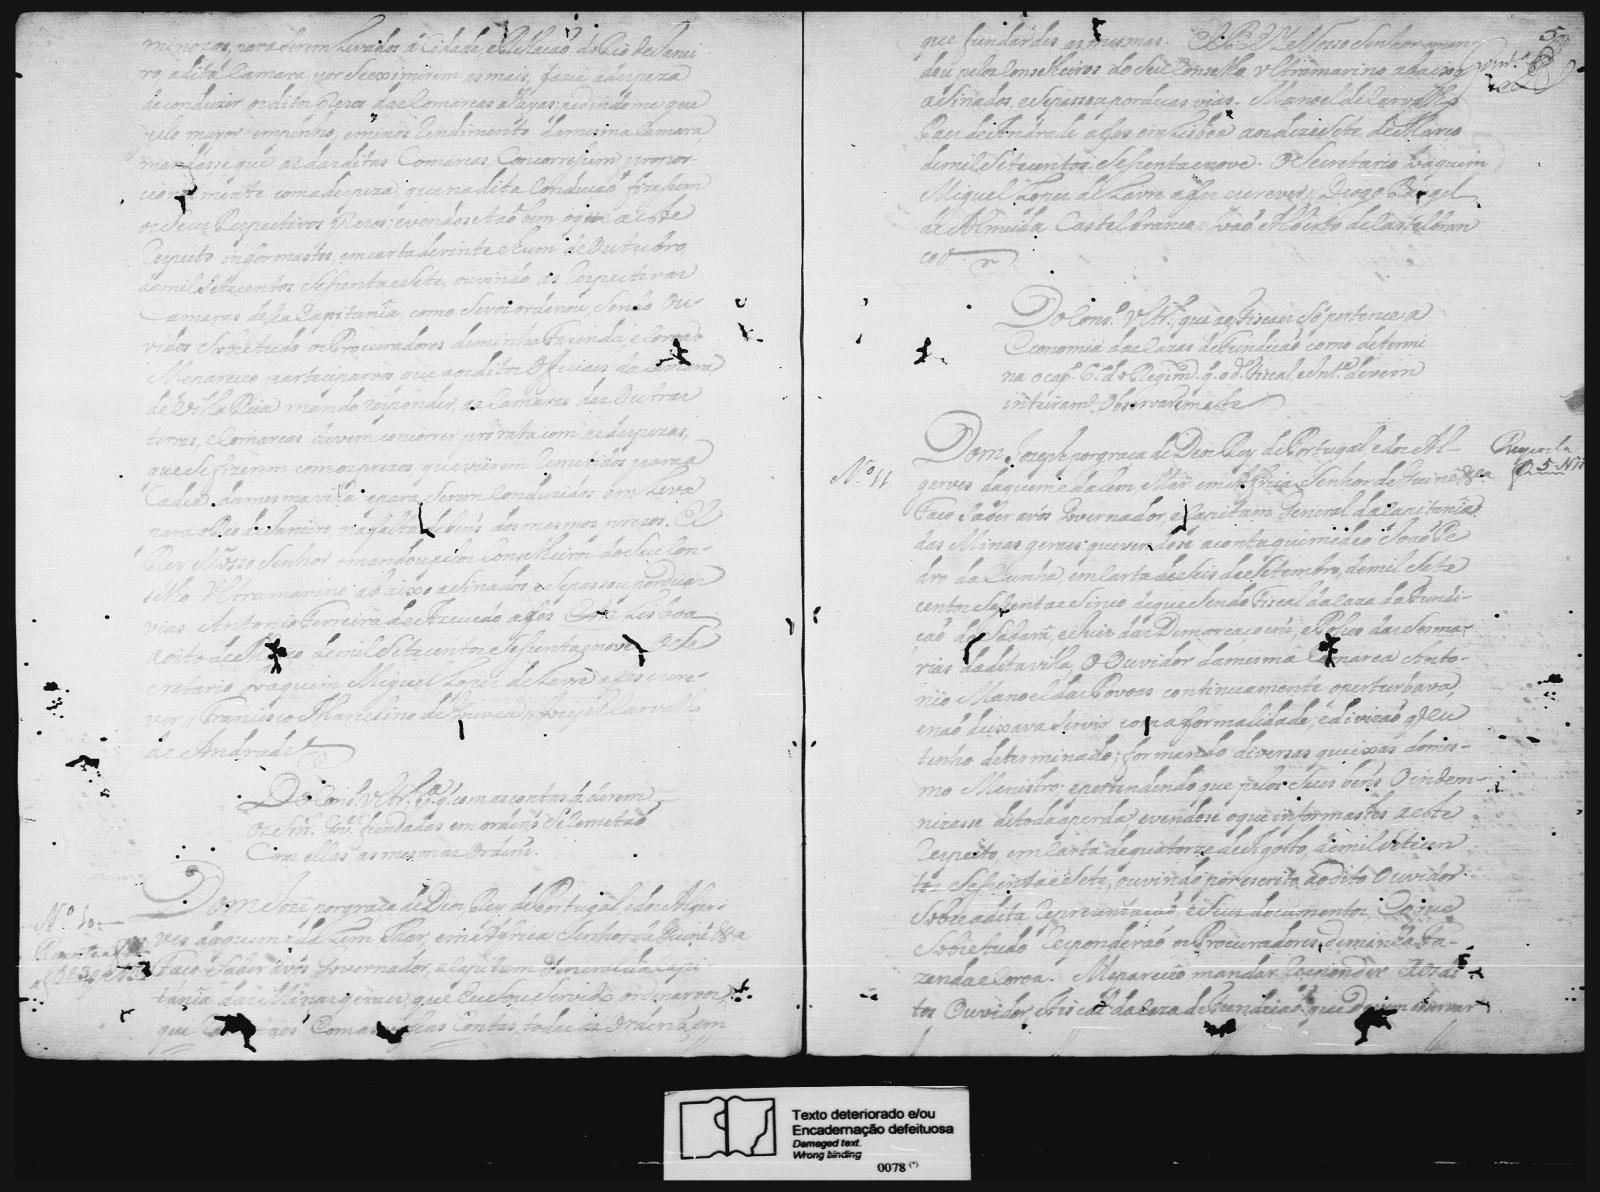 minozos, para serem Levados á Cidade, e Relação do Rio de Janei-
ro, a dita Camara, por se eximirem as mais, fazia a despeza
de conduzir os ditos Prezos das Comarcas alheyas; pedindome que
pelo mayor empenho, e menos Rendimento da mesma Camara,
mandasse que as das ditas Comarcas, Concorressem propor-
cionalmente com a despeza, que na dita Condução fizessem
os seus Respectivos Prezos; e vendose taõ bem o que a este
Respeito informastes, em carta de vinte e hum de Outubro
de mil Sete centos Sessenta e Sete, ouvindo as Respectivas
Camaras dessa Capitanîa, como se vos ordenou, Sendo Ou-
vidos Sobre tudo os Procuradores de minha Fazenda, e Coroa:
Me pareceo participarvos, que aos ditos Officiaes da Camara
de Villa Rica mando responder, as Camaras das Outras
terras, e Comarcas devem concorrer pro rata com as despezas,
que se fizerem com os prezos, que vierem Remetidos para a
Cadea da mesma villa, e para Serem Conduzidos em Leva
para o Rio de Janeiro, na falta de bens dos mesmos prezos. El
Rey Nosso Senhor o mandou pelos Conselheiros do Seu Con-
selho Ultramarino abaixo asinados, e Se passou por duas
vias Antonio Ferreira de Azevedo a fes em Lisboa
a oito de Março de mil Sete centos e Sessenta e nove O Se
cretario Joaquim Miguel Lopes de Lavre a fes escre-
ver // Francisco Marcelino de Gouvea // Joseph Carvalho
de Andrade //
Do Cons.º Ultr.º p.ª q.' com as contas q. derem
os Snr.es Gov.es fundadas em ordens Se Remetaõ
Com ellas as mesmas Ordens.
N.º 10
Dom Joze por graça de Deos Rey de Portugal, e dos Algar-
ves daquem, e da Lem Mar, em Africa Senhor de Guiné &a
Faço Saber a vós Governador, e Capitam General da Capi
tania das Minas geraes, que Eu Sou Servido ordenarvos
que Com as vossas Contas, todas as Ordens, em
5
que fundardes as mesmas. El Rey Nosso Senhor o man-
dou pelos Conselheiros do Seu Conselho Ultramarino abaixo
asinados, e Se passou por duas vias. Manoel de Carvalho
Paes de Andrade a fes em Lisboa aos dezesete de Março
de mil Sete centos Sessenta e nove. O Secretario Joaquim
Miguel Lopes de Lavre a fes escrever // Diogo Rangel
de Almeida Castelbranco // João Alberto de Castelbran
co //
Do Cons.º Ultr.º, que aos Fiscaes Só pertence a
Economia das Cazas de Fundição como determi
na o cap. 6.º do Regim.º q. o d.º Fiscal, e Int.e devem
inteiram.e Observarem este
N.º 11
Dom Joseph por graça de Deos Rey de Portugal, e dos Al-
garves daquem, e dalem, Mar em Africa Senhor de Guiné &a
Faço Saber a vós Governador, e Capitam General da Capitania
das Minas geraes que vendose a conta que me deo João Pe
dro da Cunha, em Carta de Seis de Setembro, de mil Sete
centos Sessenta e Sinco de que Sendo Fiscal da caza da Fundi-
ção do Sabará, e Juiz das Demarcaçoens, e Posses das Sesma-
rias da dita villa, O Ouvidor da mesma Comarca Anto-
nio Manoel das Povoas continuamente o perturbava,
e naõ deixava Servir com a formalidade, e divizaõ q' Eu
tenho determinado; formando diversas queixas do mes-
mo Ministro: e pertendendo que pelos Seus bens O indem-
nizasse de toda a perda, e vendose o que informastes a este
Respeito, em Carta de quatorze de Agosto, de mil Sete cen
tos Sessenta e Sete, ouvindo por escrito ao dito Ouvidor
Sobre a dita Reprezentação, e Seus documentos, e o que
Sobre tudo Responderaõ os Procuradores de minha Fa-
zenda e Coroa. Me pareceo mandar Responder aos di
tos Ouvidor, e Fiscal da Caza de Fundição que devem observar
Texto deteriorado e/ou
Encadernação defeituosa
Damaged text.
Wrong binding
0078 (*)